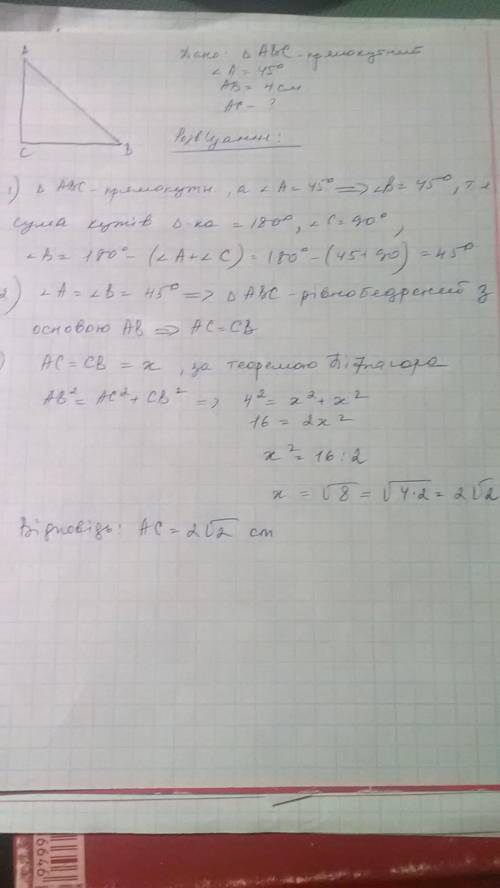 A
C
B
Дано: △ABC - прямокутний
∠A = 45°
AB = 4 см
AC - ?
Розв'язання:
1) △ABC - прямокутн., а ∠A = 45° ⇒ ∠B = 45°, т.я
сума кутів △-ка = 180°, ∠C = 90°,
∠B = 180° - (∠A + ∠C) = 180° - (45 + 90) = 45°
2) ∠A = ∠B = 45° ⇒ △ABC - рівнобедрений з
основою AB ⇒ AC = CB
) AC = CB = x, за теоремою Піфагора
AB² = AC² + CB² ⇒ 4² = x² + x²
16 = 2x²
x² = 16 : 2
x = √8 = √4·2 = 2√2
Відповідь: AC = 2√2 cm